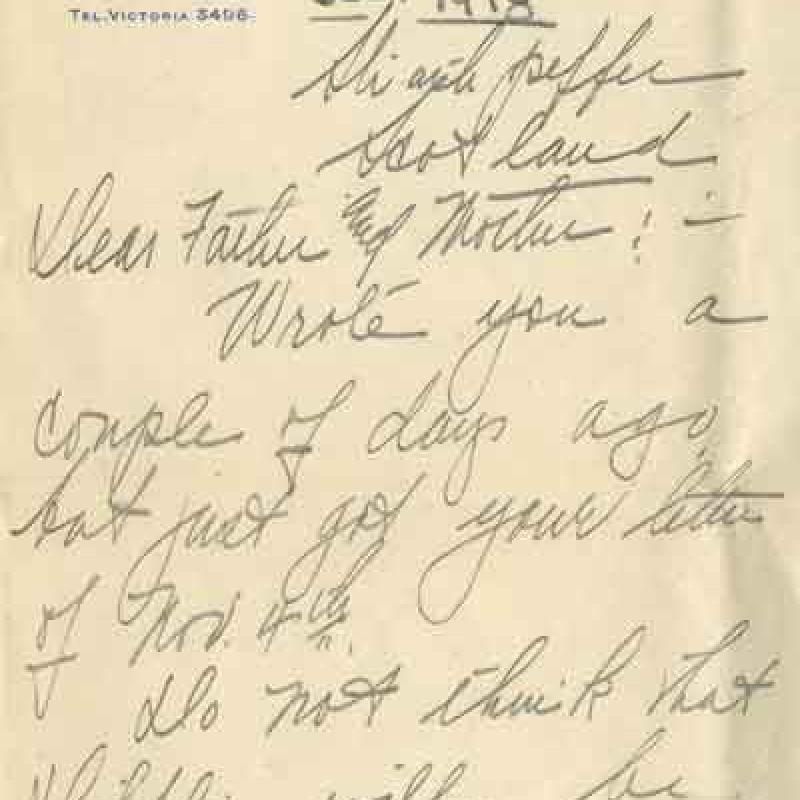 TEL. VICTORIA 3406
1918
Strathpeffer
Scotland
Dear Father & Mother : —
Wrote you a
couple of days ago
but just got your letter
of Nov. 4th.
Do not think that
will be